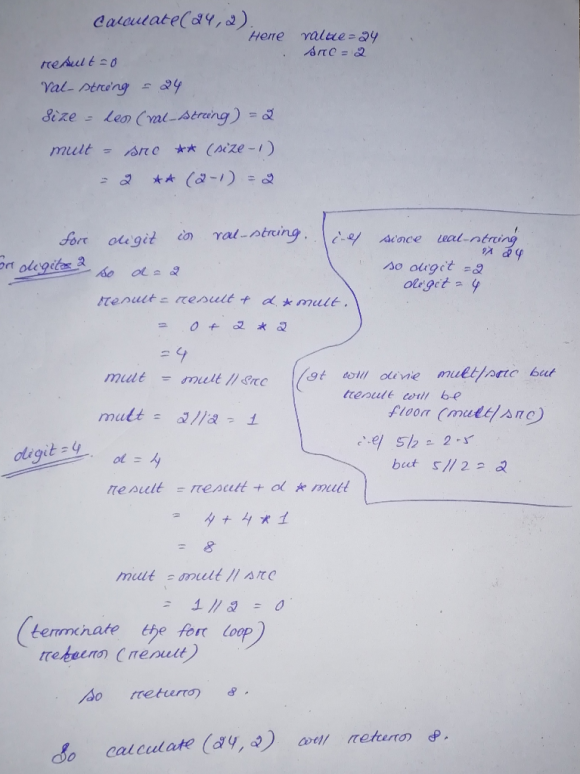 calculate(24,2).
Here value=24
src=2
result=0
val-string = 24
Size = Len(val-string) = 2
mult = src ** (size-1)
= 2 ** (2-1) = 2
for digit in val-string.
for digit=2
so d=2
result=result + d*mult.
= 0 + 2 * 2
= 4
mult = mult//src
mult = 2//2 = 1
i.e/ since val-string
is 24
so digit=2
digit=4
(It will divie mult/src but
result will be
floor(mult/src)
i.e/ 5/2=2.5
but 5//2=2
digit=4.
d=4
result=result+d*mult
= 4+4*1
= 8
mult=mult//src
= 1//2 = 0
(terminate the for loop)
return(result)
so return 8.
So calculate(24,2) will return 8.